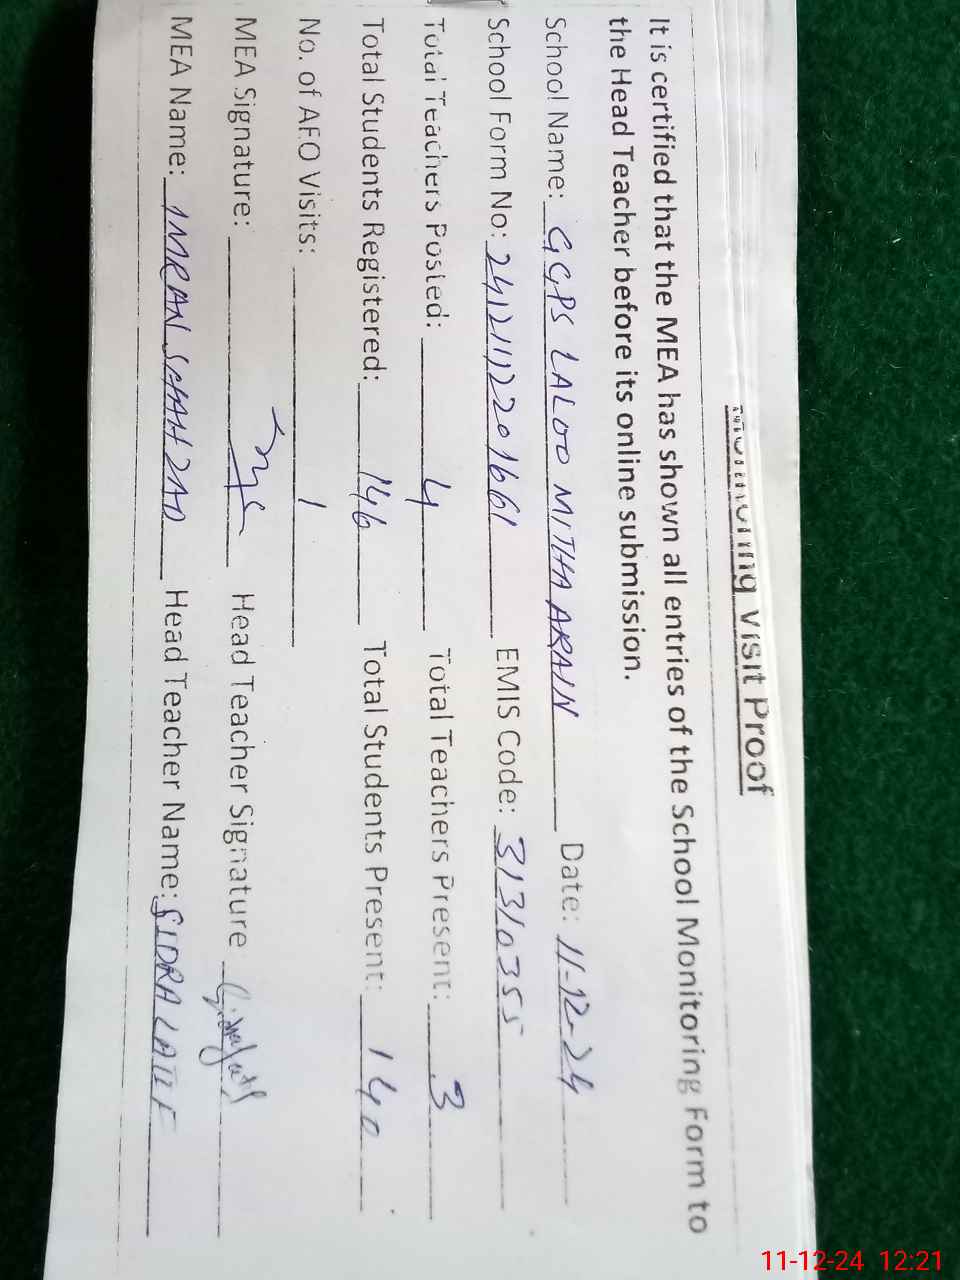 Monitoring Visit Proof
It is certified that the MEA has shown all entries of the School Monitoring Form to
the Head Teacher before its online submission.
School Name: GGPS LALOO MITHA ARAIN Date: 11-12-24
School Form No: 24121112201661 EMIS Code: 31310355
Total Teachers Posted: 4 Total Teachers Present: 3
Total Students Registered: 146 Total Students Present: 140
No. of AEO Visits: 1
MEA Signature: Head Teacher Signature:
MEA Name: IMRAN SHAHZAD Head Teacher Name: SIDRA LATIF
11-12-24 12:21